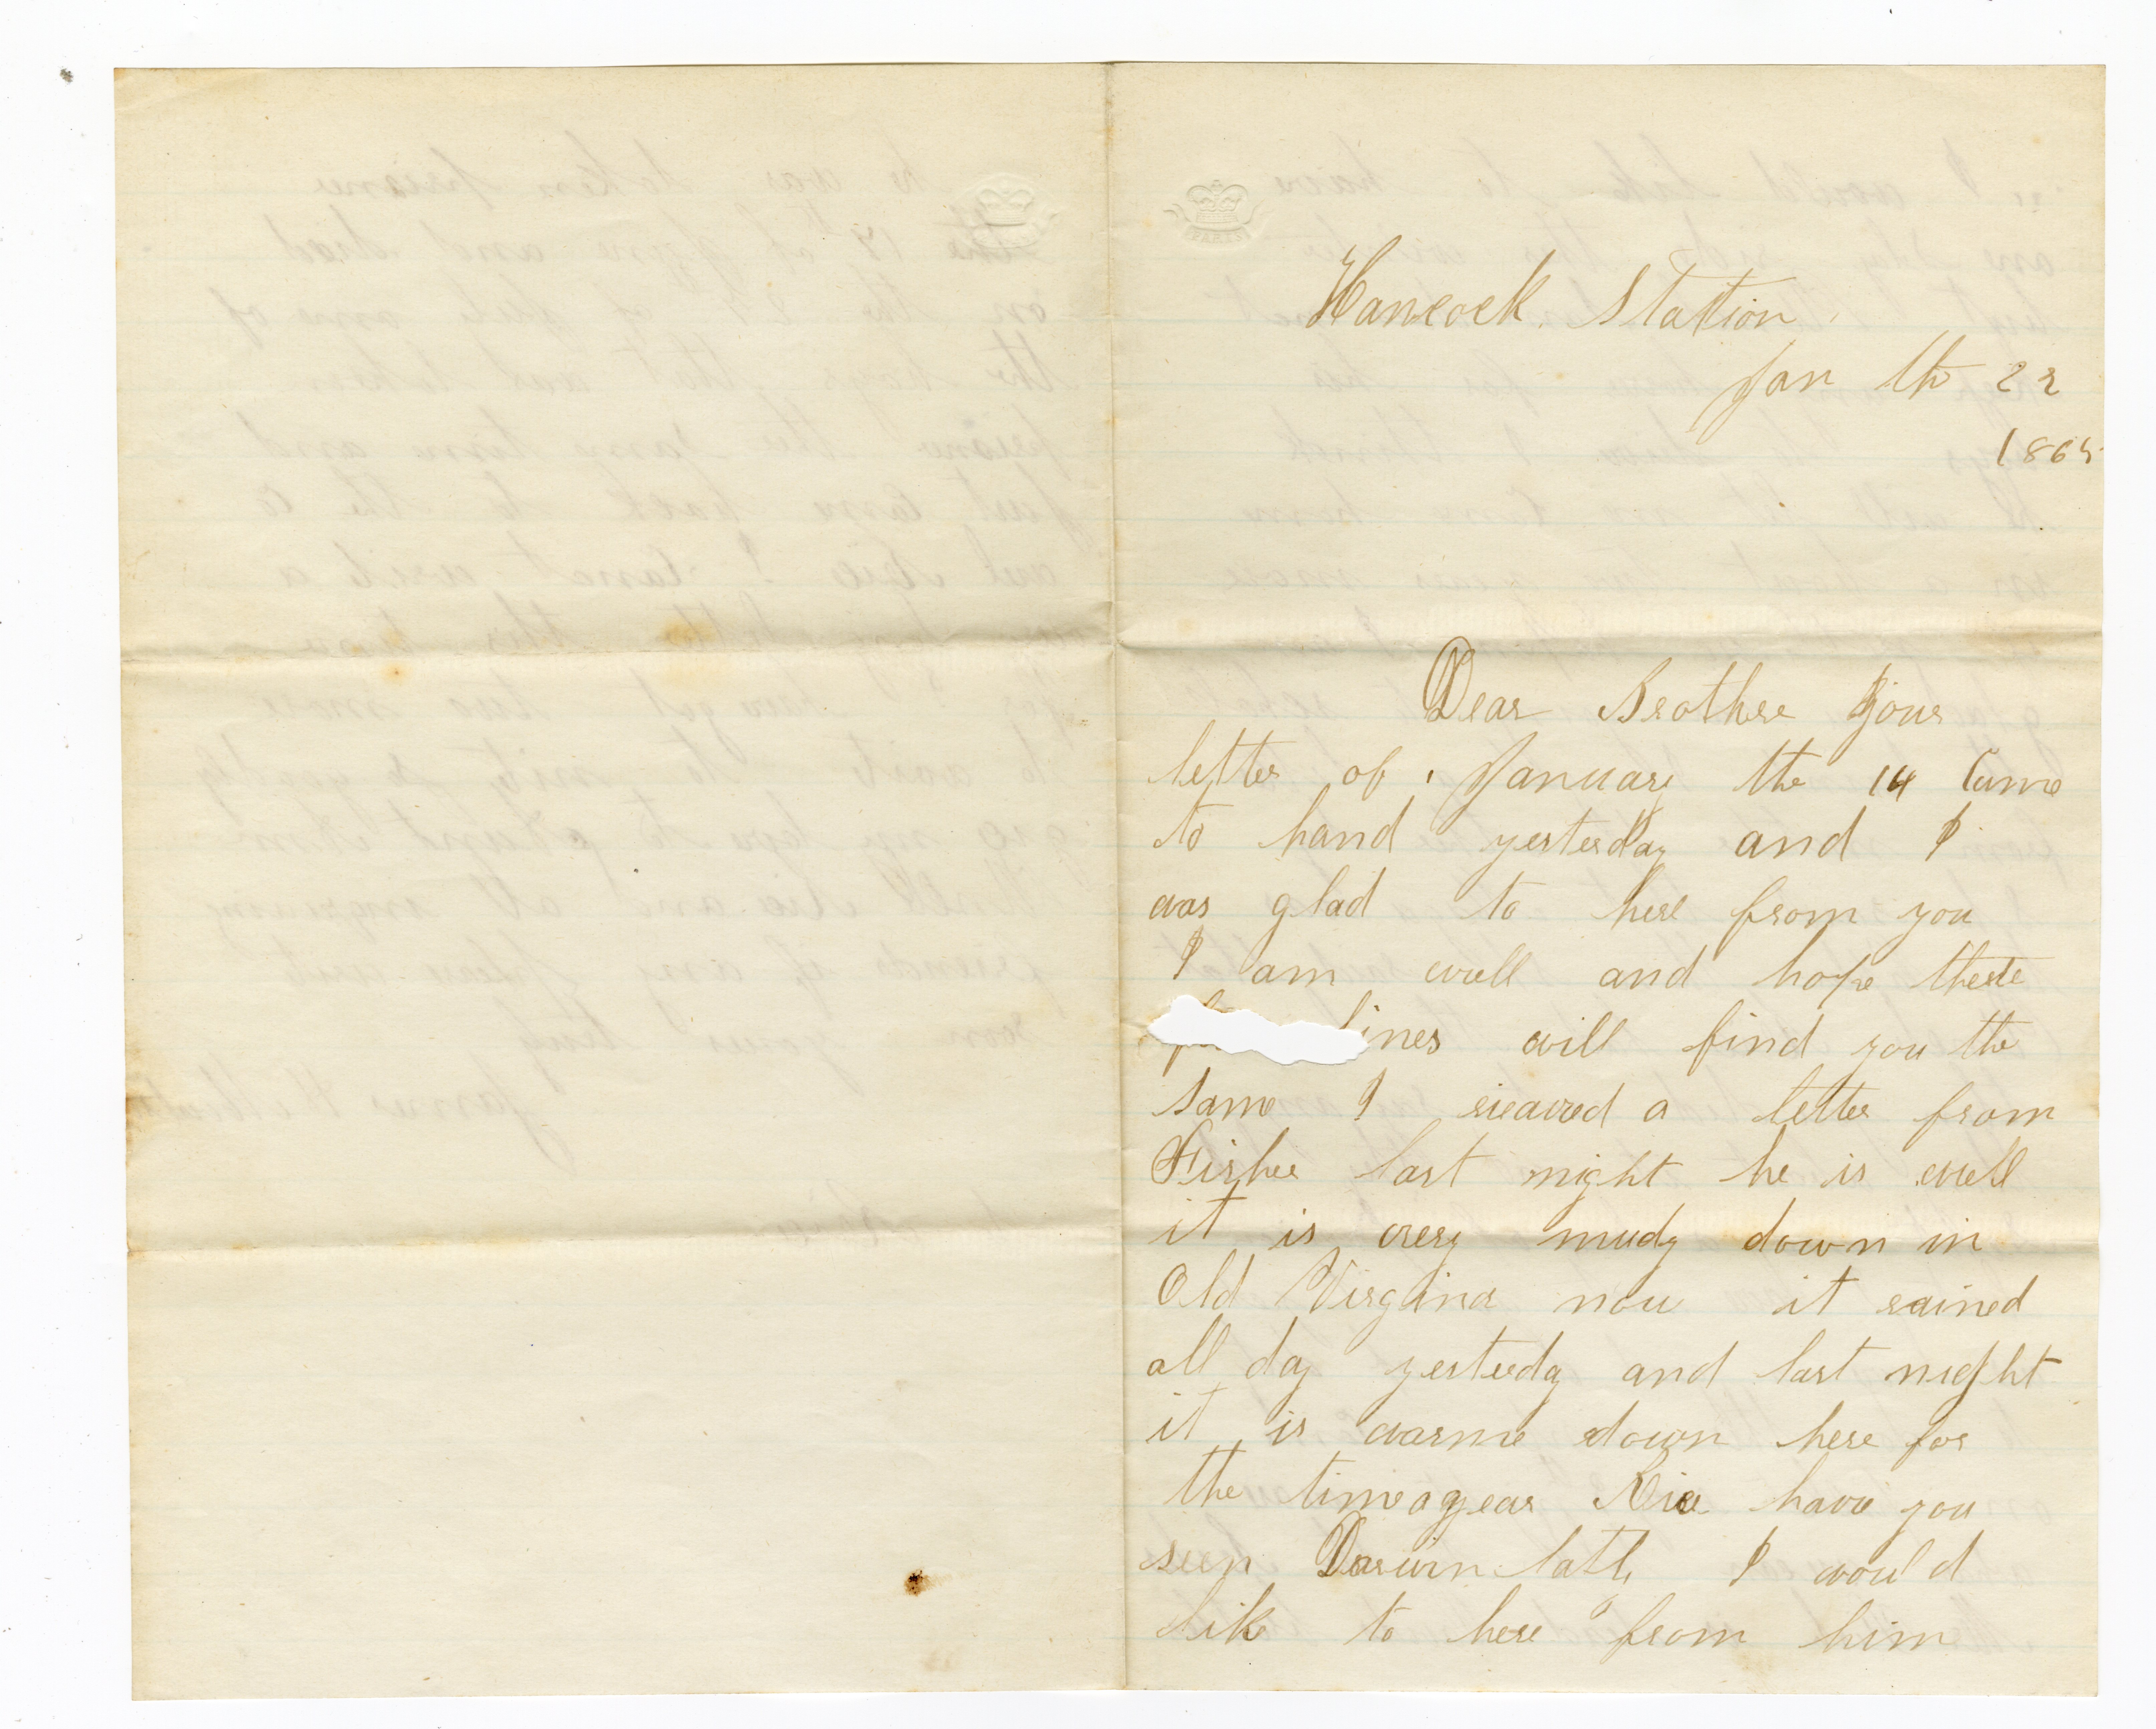 PARIS
Hancock Station
Jan th 22
1865
Dear Brothere Your
letter of January the 14 Came
to hand yesterday and I
was glad to here from you
I am well and hope these
lines will find you the
same I reaived a letter from
Fisher last night he is well
it is very mudy down in
Old Virgina now it rained
all day yesterday and last night
it is warme down here for
the time a year Rice have you
seen Darwin latly I would
like to here from him